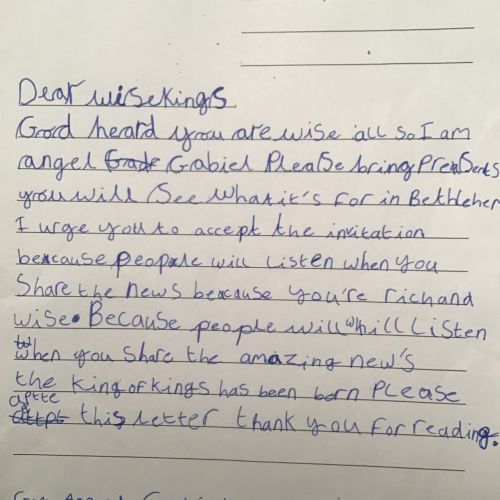 Dear wise kings
Good heard you are wise all so I am
angel Grade Gabiel Please bring Presents
you will See what it's for in Bethlehem
I urge you to accept the invitation
because people will listen when you
Share the news because you're rich and
wise. Because people will whill Listen
when you share the amazing new's
the king of kings has been born Please
aftte
this letter thank you for reading.